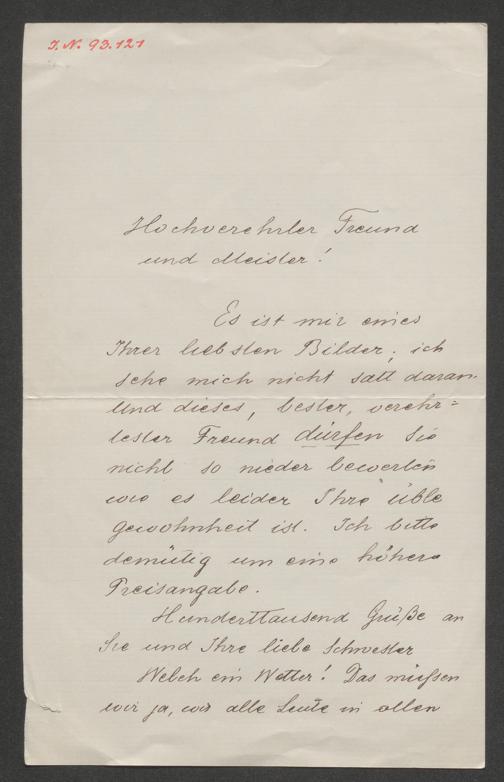 I.N. 93.121
Hochverehrter Freund
und Meister!
Es ist mir eines
Ihrer liebsten Bilder; ich
sehe mich nicht satt daran.
Und dieses, bester, verehr=
tester Freund dürfen Sie
nicht so nieder bewerten
wie es leider Ihre üble
Gewohnheit ist. Ich bitte
demütig um eine höhere
Preisangabe.
Hunderttausend Grüße an
Sie und Ihre liebe Schwester
Welch ein Wetter! Das müßen
wir ja, wir alle Leute in allen